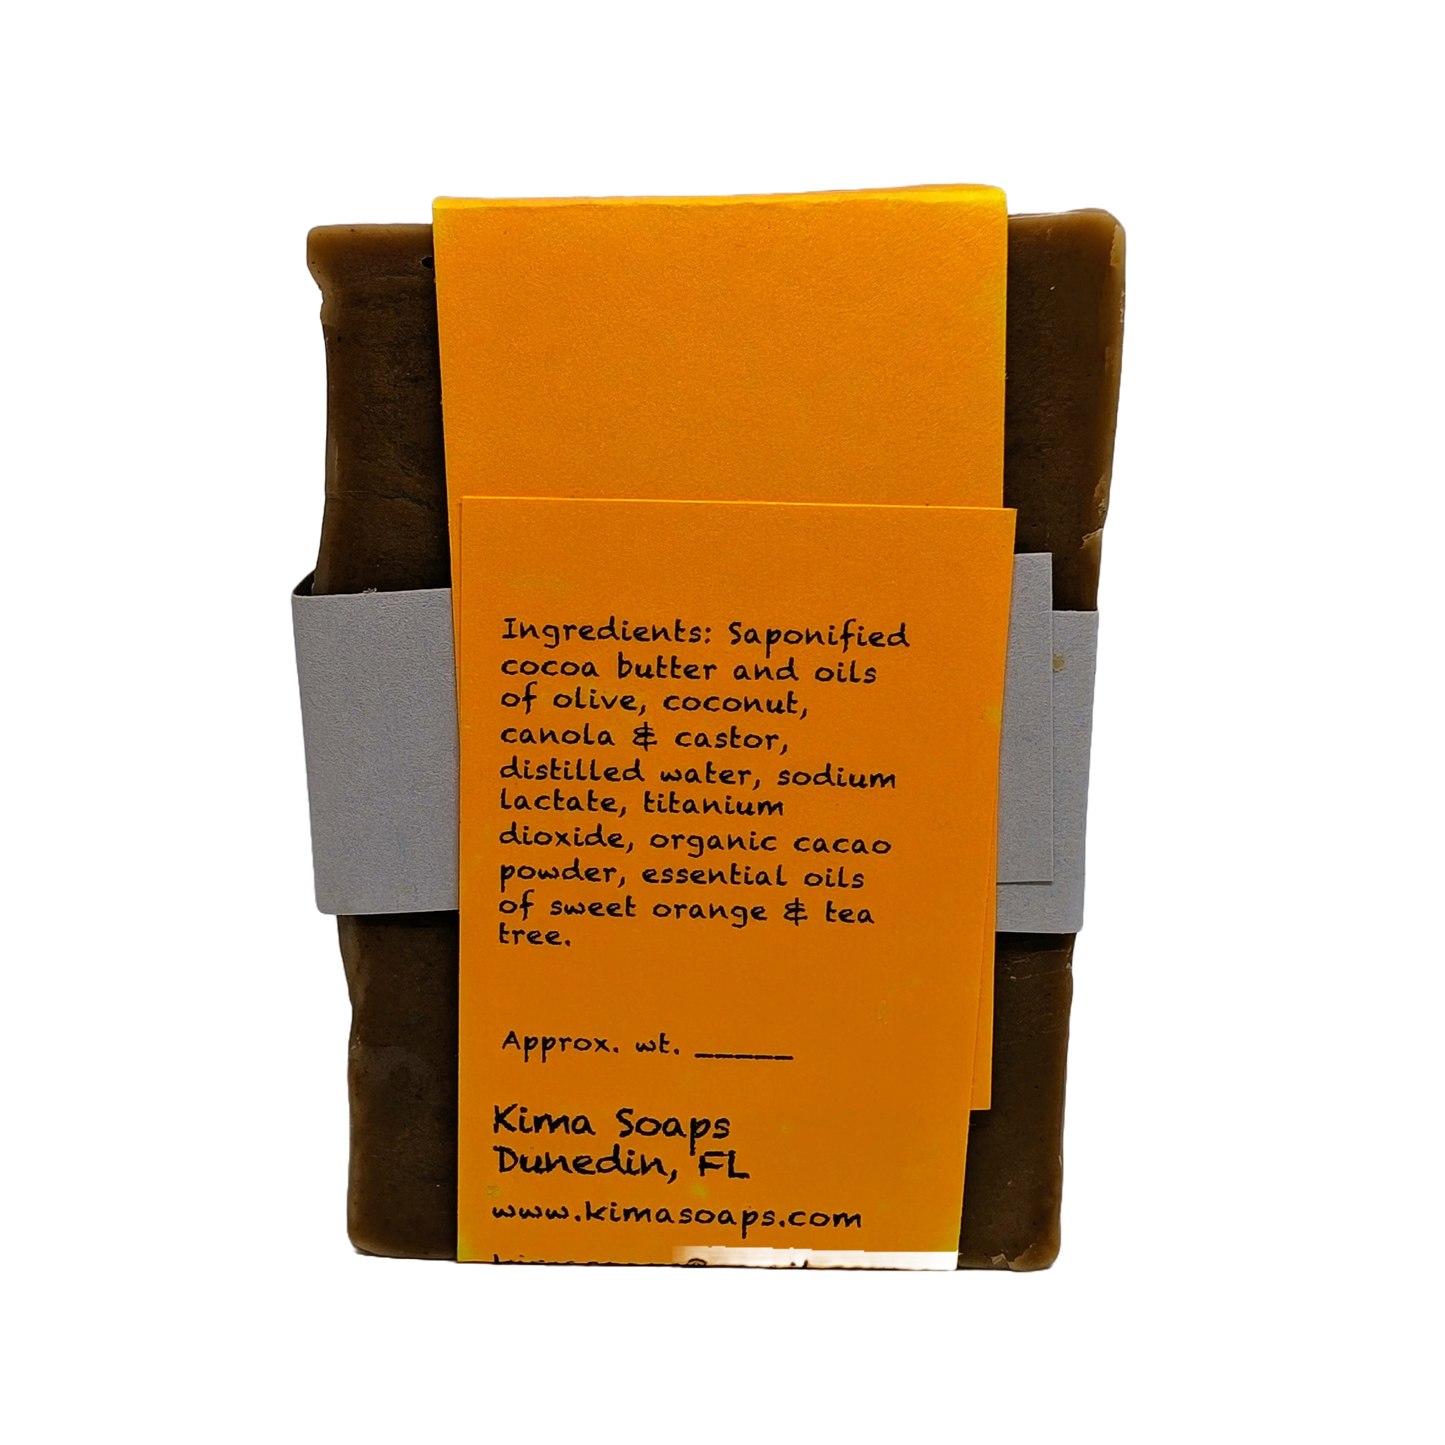 Ingredients: Saponified
cocoa butter and oils
of olive, coconut,
canola & castor,
distilled water, sodium
lactate, titanium
dioxide, organic cacao
powder, essential oils
of sweet orange & tea
tree.
Approx. wt. _____
Kima Soaps
Dunedin, FL
www.kimasoaps.com